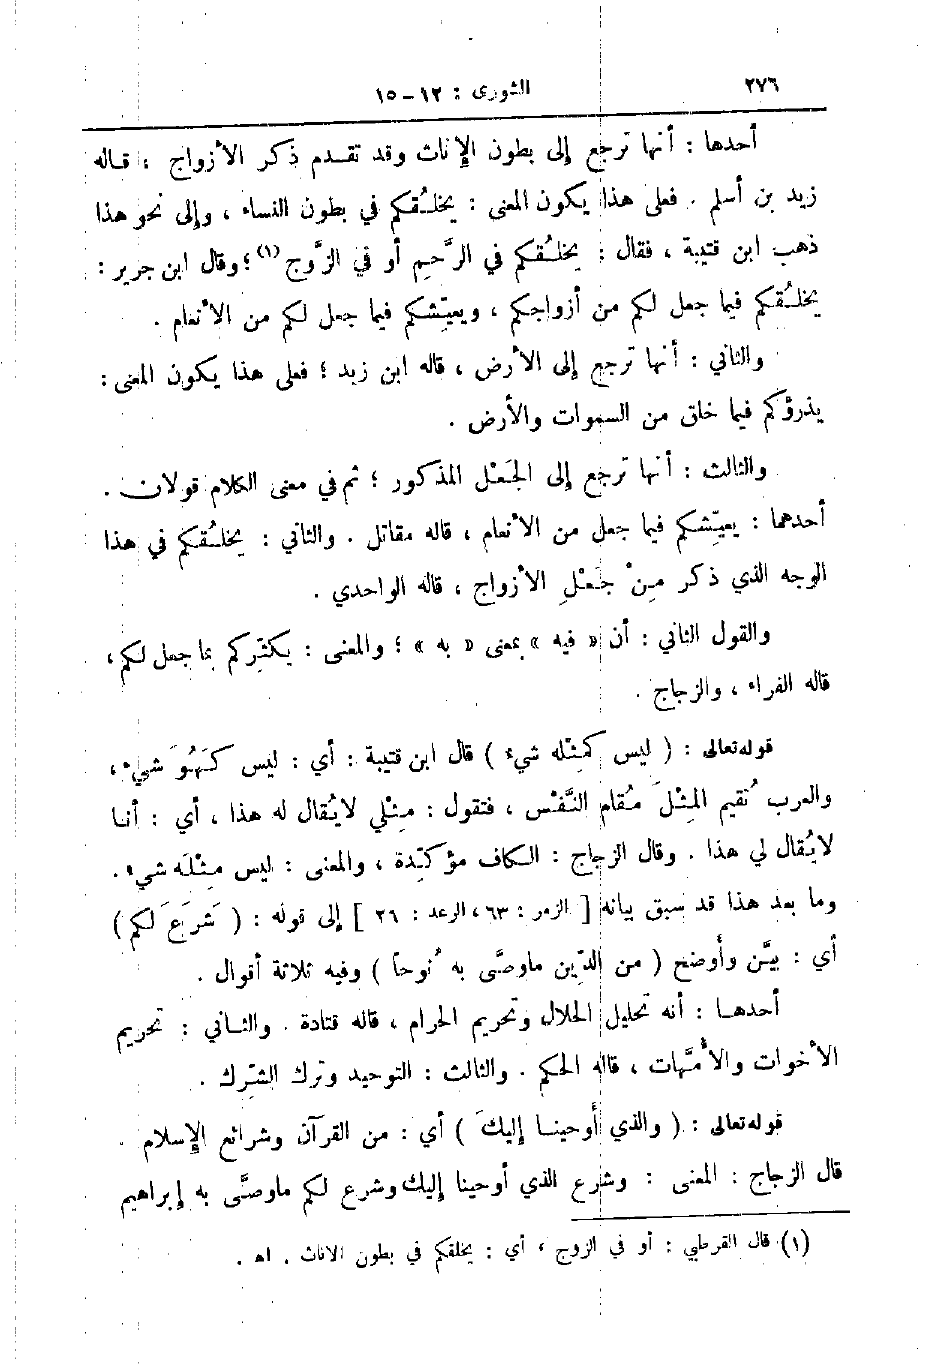 ٢٧٦
الشورى : ١٢-١٥
أحدها : أنها ترجع إلى بطون الإناث وقد تقدم ذكر الأزواج ، قاله
زيد بن أسلم . فعلى هذا يكون المعنى : يخلُقكم في بطون النساء ، وإلى نحو هذا
ذهب ابن قتيبة ، فقال : يخلُقكم في الرَّحِم أو في الزَّوج (١)؛ وقال ابن جرير :
يخلُقكم فيما جعل لكم من أزواجكم ، ويعيِّشكم فيما جعل لكم من الأنعام .
والثاني : أنها ترجع إلى الأرض ، قاله ابن زيد ؛ فعلى هذا يكون المعنى :
يذرؤكم فيما خلق من السموات والأرض .
والثالث : أنها ترجع إلى الجَعْل المذكور ؛ ثم في معنى الكلام قولان .
أحدهما : يعيِّشكم فيما جعل من الأنعام ، قاله مقاتل . والثاني : يخلُقكم في هذا
الوجه الذي ذكر مِنْ جَعْلِ الأزواج ، قاله الواحدي .
والقول الثاني : أن « فيه » بمعنى « به » ؛ والمعنى : يكثِّركم بما جعل لكم ،
قاله الفراء ، والزجاج .
قوله تعالى : ( ليس كمِثْله شيء ) قال ابن قتيبة : أي : ليس كَهُوَ شيء ،
والعرب تُقيم المِثْلَ مُقام النَّفْس ، فتقول : مِثْلي لا يُقال له هذا ، أي : أنا
لا يُقال لي هذا . وقال الزجاج : الكاف مؤكِّدة ، والمعنى : ليس مِثْلَه شيء .
وما بعد هذا قد سبق بيانه [ الزمر : ٦٣ ، الرعد : ٢٦ ] إلى قوله : ( شَرَعَ لكم )
أي : بيَّن وأوضح ( من الدِّين ماوصَّى به نُوحاً ) وفيه ثلاثة أقوال .
أحدها : أنه تحليل الحلال وتحريم الحرام ، قاله قتادة . والثاني : تحريم
الأخوات والأُمَّهات ، قاله الحكم . والثالث : التوحيد وترك الشِّرك .
قوله تعالى : ( والذي أوحينا إليكَ ) أي : من القرآن وشرائع الإسلام .
قال الزجاج : المعنى : وشرع الذي أوحينا إليك وشرع لكم ماوصَّى به إبراهيم
(١) قال القرطبي : أو في الزوج ، أي : يخلقكم في بطون الاناث . اه .